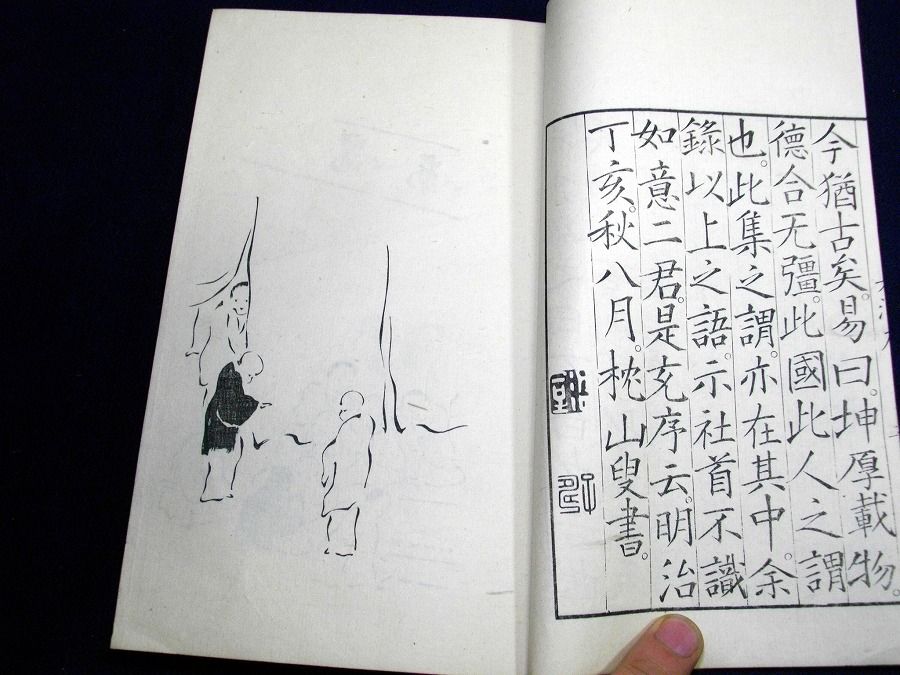 今猶古矣。易曰。坤厚載物。
德合无彊。此國此人之謂
也。此集之謂。亦在其中。余
錄以上之語。示社首不識
如意二君。是爲序云。明治
丁亥秋八月。枕山叟書。